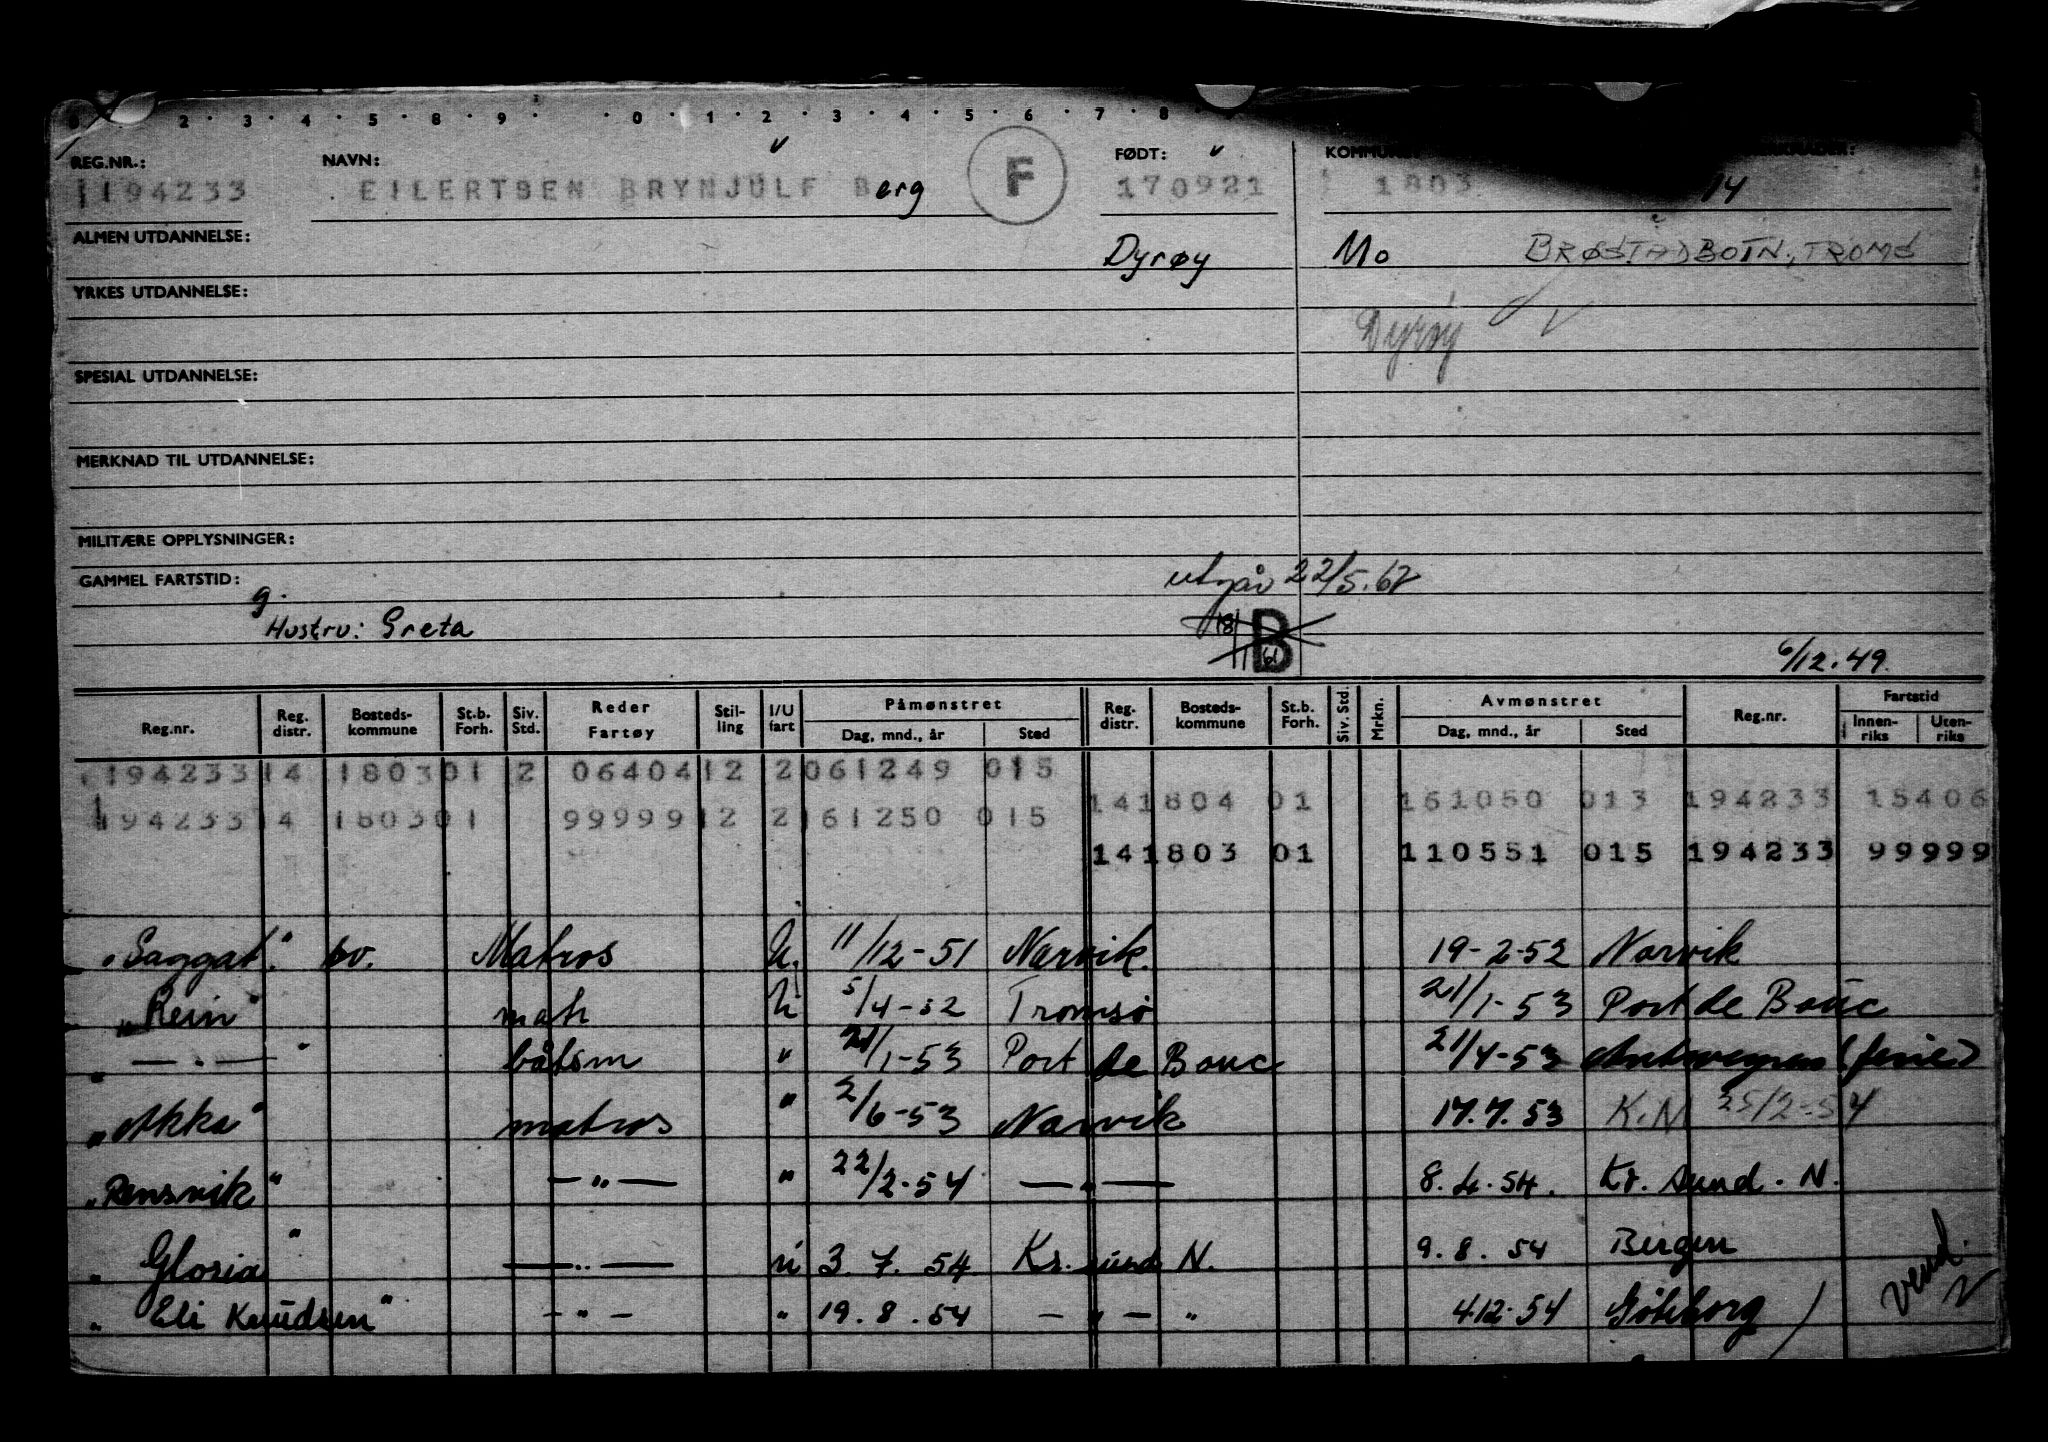 2 · 3 · 4 · 5 · 8 · 9 · · 0 · 1 · 2 · 3 · 4 · 5 · 6 · 7 · 8 ·
REG.NR.: NAVN: FØDT: KOMMUNE:
194233 EILERTSEN BRYNJULF Berg F 170921 1803 14
ALMEN UTDANNELSE: Dyrøy Mo BRØSTADBOTN, TROMS
YRKES UTDANNELSE:
Dyrøy
SPESIAL UTDANNELSE:
MERKNAD TIL UTDANNELSE:
MILITÆRE OPPLYSNINGER:
GAMMEL FARTSTID: utgår 22/5.62
g.
Hustru: Greta B
6/12.49
Reg.nr. Reg. distr. Bosteds-kommune St.b. Forh. Siv. Std. Reder Fartøy Stil-ling I/U fart Påmønstret Dag, mnd., år Sted Reg. distr. Bosteds-kommune St.b. Forh. Siv. Std. Mrkn. Avmønstret Dag, mnd., år Sted Reg.nr. Fartstid Innen-riks Uten-riks
194233 14 1803 01 2 06404 12 2 061249 015
14 1804 01 161050 013 194233 15406
194233 14 1803 01 99999 12 2 161250 015
14 1803 01 110551 015 194233 99999
"Saggat" bv. Matros U. 11/12-51 Narvik. 19-2-52 Narvik
"Rein" matr U 5/4-52 Tromsø 21/1-53 Port de Bouc
" — " — " båtsm " 21/1-53 Port de Bouc 21/4-53 Antwerpen (ferie)
"Akka" matros " 2/6-53 Narvik 17.7.53 K.N 25/2-54
"Rensvik" — " — " 22/2-54 — " — 8.4.54. Kr. sund. N.
"Gloria" — " — u 3.7.54 Kr. sund N. 9.8.54 Bergen
"Eli Knudsen" - " - " 19.8.54 — " — " 4.12.54 Göteborg
Vend.